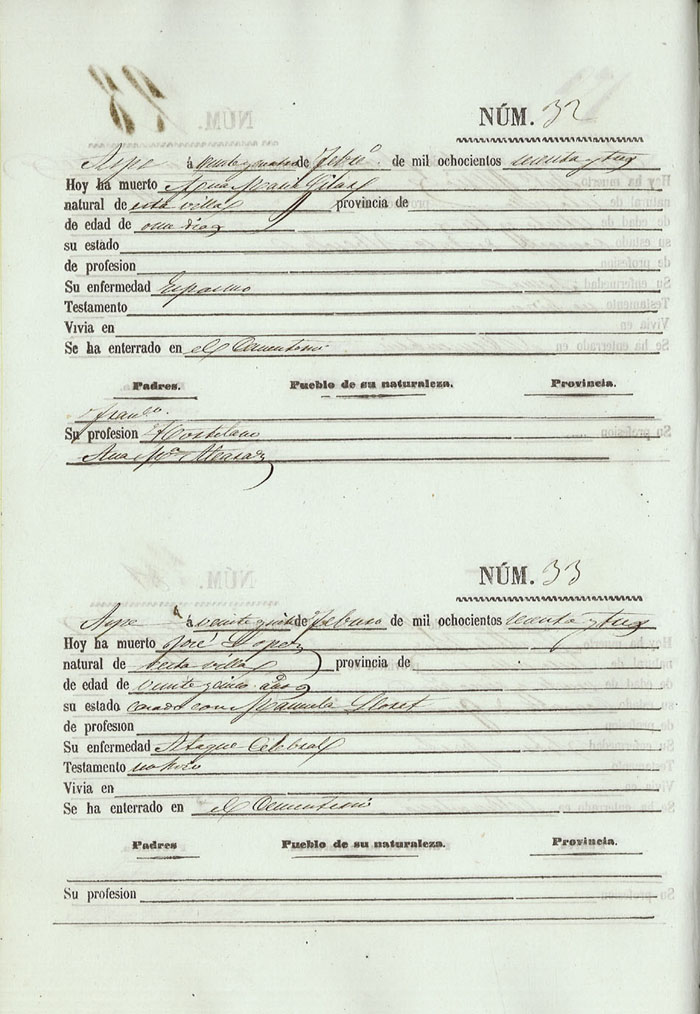 NÚM. 32
Aspe á veinte y cuatro de Febro. de mil ochocientos
Hoy ha muerto Ana Maria
natural de esta villa provincia de
de edad de once dias
su estado
de profesion
Su enfermedad Espasmo
Testamento
Vivia en
Se ha enterrado en el Cementerio
Padres. Pueblo de su naturaleza. Provincia.
Franco.
Su profesion
Ana Ma.
NÚM. 33
Aspe á veinte y de Febrero de mil ochocientos
Hoy ha muerto José Lopez
natural de esta villa provincia de
de edad de veinte y cinco años
su estado casado con Manuela Lloret
de profesion
Su enfermedad Ataque Celebral
Testamento no hizo
Vivia en
Se ha enterrado en el Cementerio
Padres Pueblo de su naturaleza. Provincia.
Su profesion